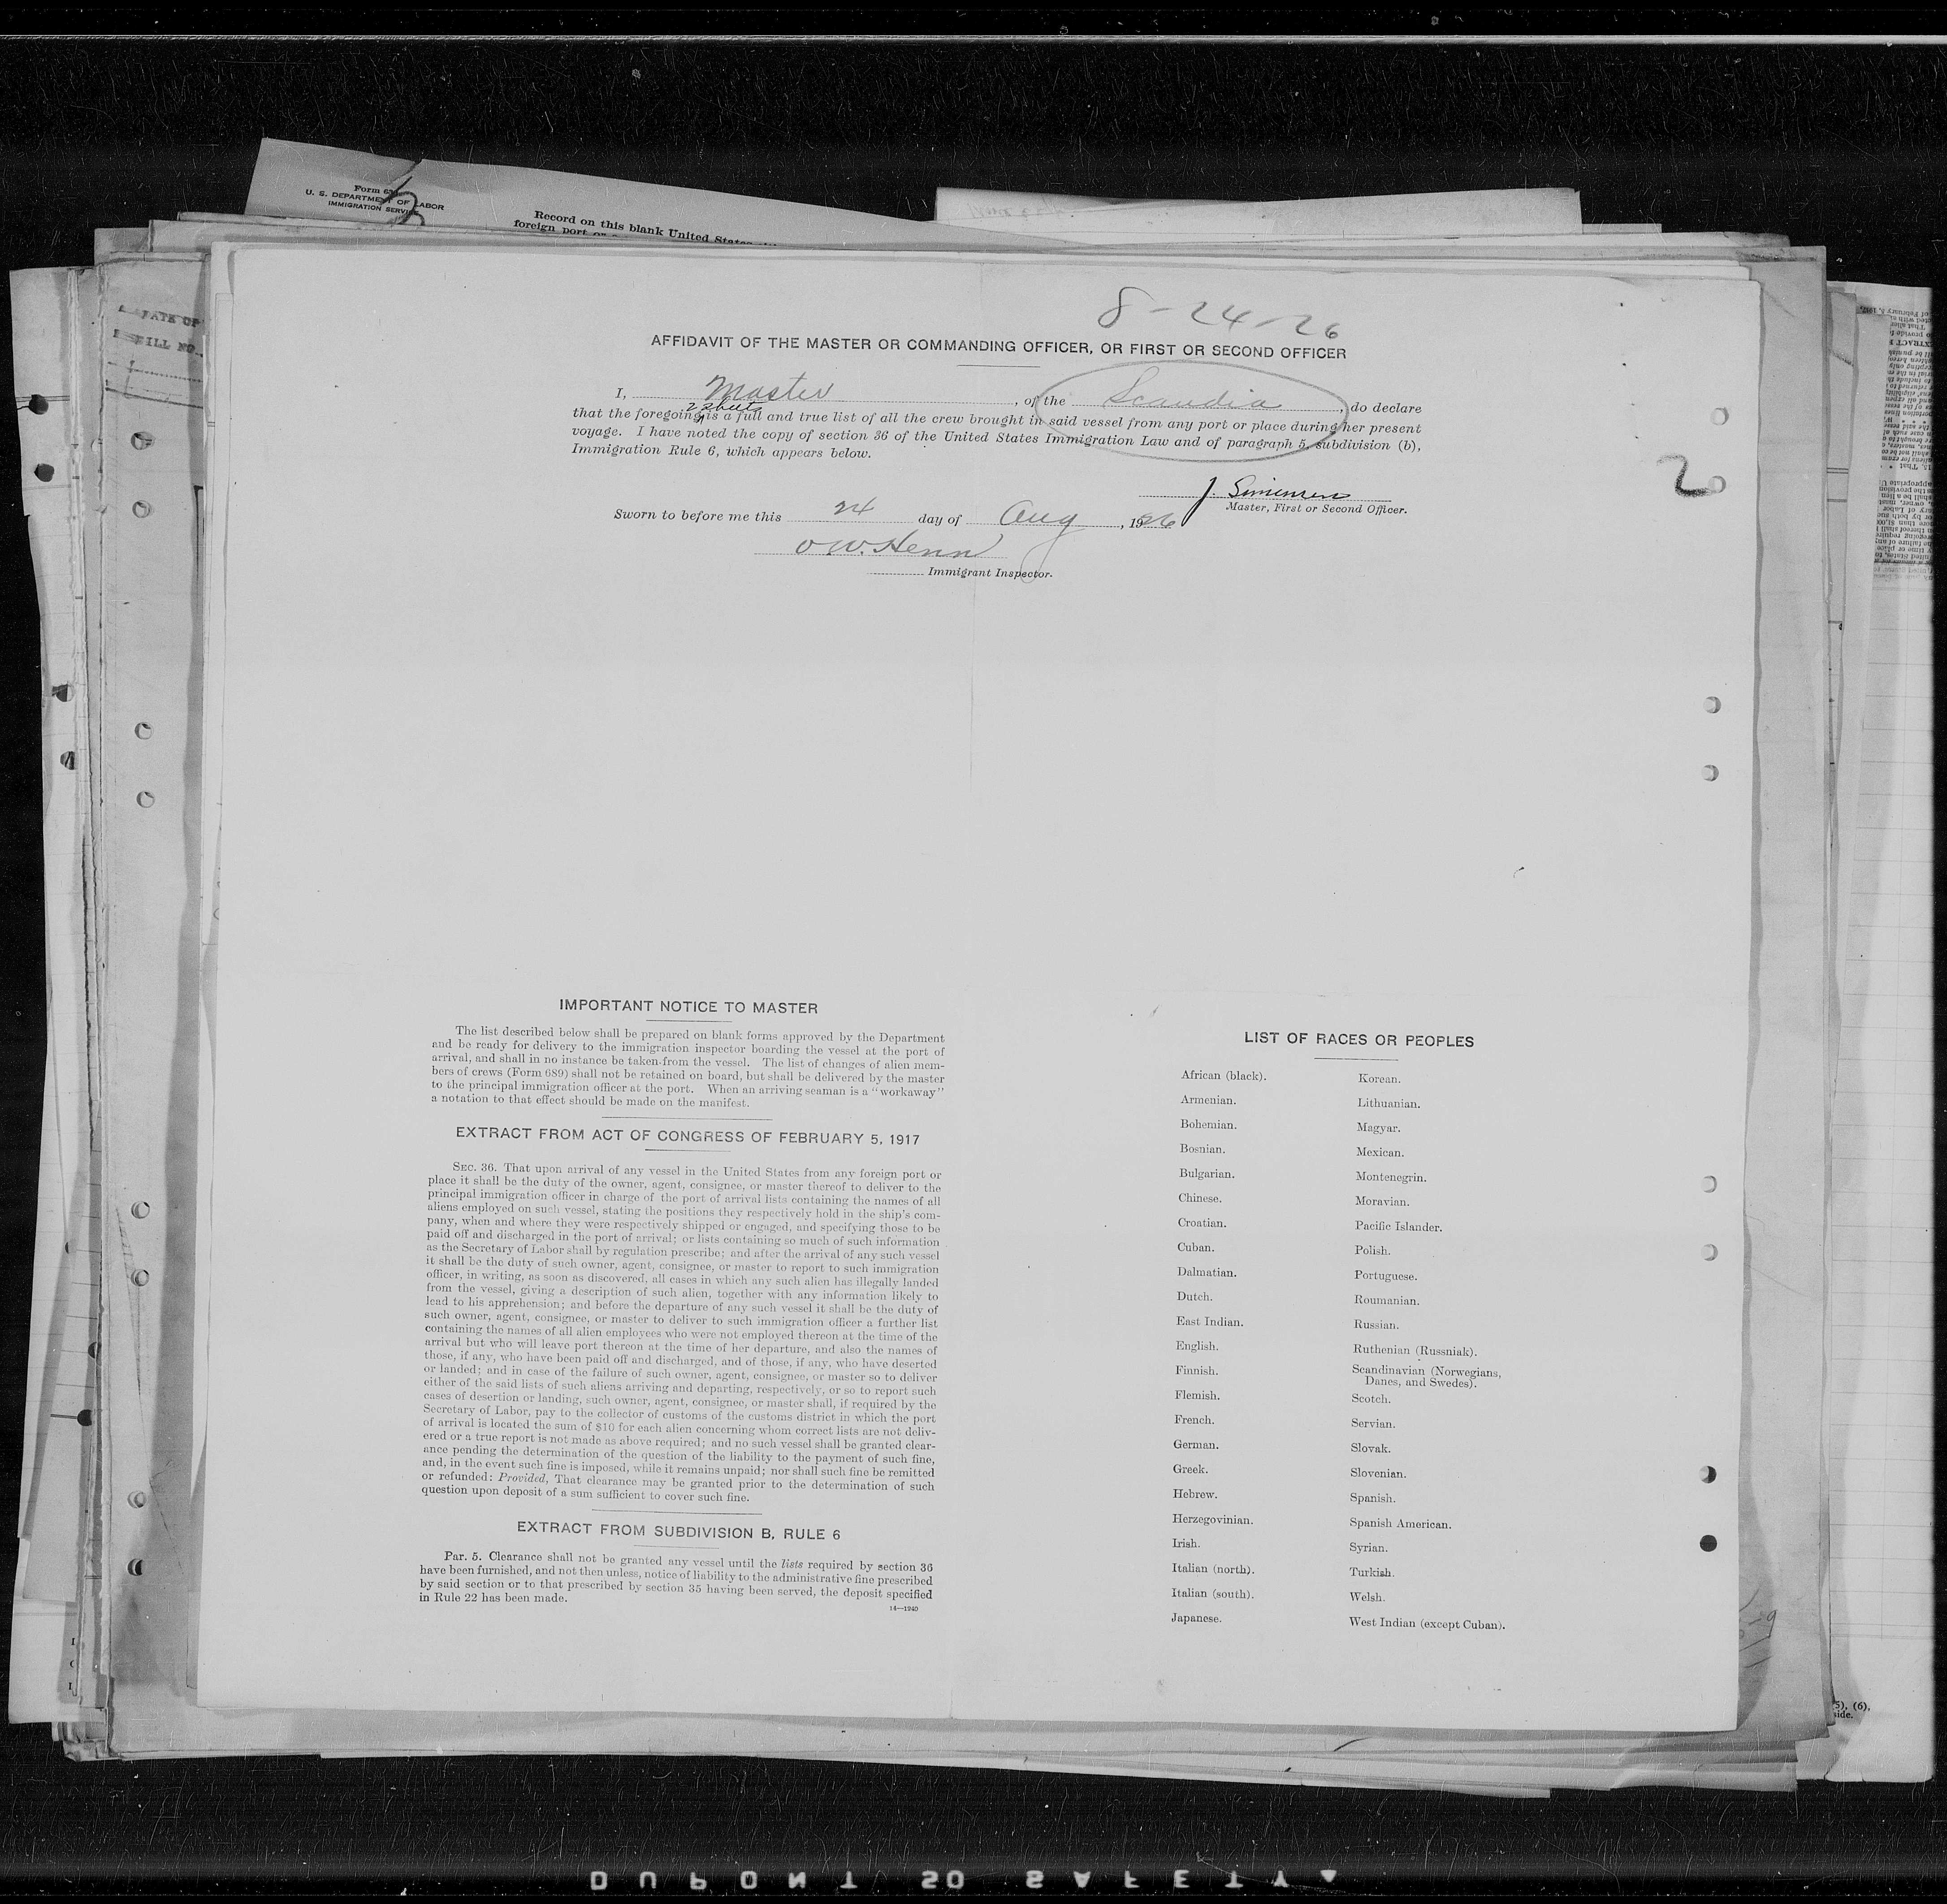 Form 68
U. S. DEPARTMENT OF LABOR
IMMIGRATION SERVICE
Record on this blank United States
foreign port or
8-24-26
AFFIDAVIT OF THE MASTER OR COMMANDING OFFICER, OR FIRST OR SECOND OFFICER
I, Master, of the Scandia, do declare
2 sheets
that the foregoing is a full and true list of all the crew brought in said vessel from any port or place during her present
voyage. I have noted the copy of section 36 of the United States Immigration Law and of paragraph 5, subdivision (b),
Immigration Rule 6, which appears below.
2
J. Simensen
Master, First or Second Officer.
Sworn to before me this 24 day of Aug, 1926
O. W. Henn
Immigrant Inspector.
IMPORTANT NOTICE TO MASTER
The list described below shall be prepared on blank forms approved by the Department
and be ready for delivery to the immigration inspector boarding the vessel at the port of
arrival, and shall in no instance be taken from the vessel. The list of changes of alien mem-
bers of crews (Form 689) shall not be retained on board, but shall be delivered by the master
to the principal immigration officer at the port. When an arriving seaman is a "workaway"
a notation to that effect should be made on the manifest.
EXTRACT FROM ACT OF CONGRESS OF FEBRUARY 5, 1917
SEC. 36. That upon arrival of any vessel in the United States from any foreign port or
place it shall be the duty of the owner, agent, consignee, or master thereof to deliver to the
principal immigration officer in charge of the port of arrival lists containing the names of all
aliens employed on such vessel, stating the positions they respectively hold in the ship's com-
pany, when and where they were respectively shipped or engaged, and specifying those to be
paid off and discharged in the port of arrival; or lists containing so much of such information
as the Secretary of Labor shall by regulation prescribe; and after the arrival of any such vessel
it shall be the duty of such owner, agent, consignee, or master to report to such immigration
officer, in writing, as soon as discovered, all cases in which any such alien has illegally landed
from the vessel, giving a description of such alien, together with any information likely to
lead to his apprehension; and before the departure of any such vessel it shall be the duty of
such owner, agent, consignee, or master to deliver to such immigration officer a further list
containing the names of all alien employees who were not employed thereon at the time of the
arrival but who will leave port thereon at the time of her departure, and also the names of
those, if any, who have been paid off and discharged, and of those, if any, who have deserted
or landed; and in case of the failure of such owner, agent, consignee, or master so to deliver
either of the said lists of such aliens arriving and departing, respectively, or so to report such
cases of desertion or landing, such owner, agent, consignee, or master shall, if required by the
Secretary of Labor, pay to the collector of customs of the customs district in which the port
of arrival is located the sum of $10 for each alien concerning whom correct lists are not deliv-
ered or a true report is not made as above required; and no such vessel shall be granted clear-
ance pending the determination of the question of the liability to the payment of such fine,
and, in the event such fine is imposed, while it remains unpaid; nor shall such fine be remitted
or refunded: Provided, That clearance may be granted prior to the determination of such
question upon deposit of a sum sufficient to cover such fine.
EXTRACT FROM SUBDIVISION B, RULE 6
Par. 5. Clearance shall not be granted any vessel until the lists required by section 36
have been furnished, and not then unless, notice of liability to the administrative fine prescribed
by said section or to that prescribed by section 35 having been served, the deposit specified
in Rule 22 has been made.
14—1240
LIST OF RACES OR PEOPLES
African (black).
Armenian.
Bohemian.
Bosnian.
Bulgarian.
Chinese.
Croatian.
Cuban.
Dalmatian.
Dutch.
East Indian.
English.
Finnish.
Flemish.
French.
German.
Greek.
Hebrew.
Herzegovinian.
Irish.
Italian (north).
Italian (south).
Japanese.
Korean.
Lithuanian.
Magyar.
Mexican.
Montenegrin.
Moravian.
Pacific Islander.
Polish.
Portuguese.
Roumanian.
Russian.
Ruthenian (Russniak).
Scandinavian (Norwegians,
Danes, and Swedes).
Scotch.
Servian.
Slovak.
Slovenian.
Spanish.
Spanish American.
Syrian.
Turkish.
Welsh.
West Indian (except Cuban).
5), (6),
side.
DUPONT 50 SAFETY